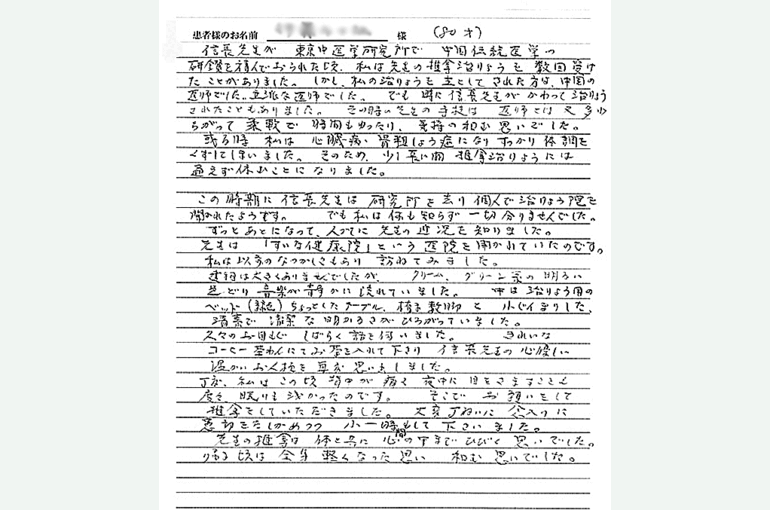 患者様のお名前 様 (80才)
信長先生が 東京中医学研究所で 中国伝統医学の
研鑽を積んでおられた頃、私は先生の推拿治りょうを 数回受け
たことがありました。しかし、私の治りょうを主としてされた方は、中国の
医師でした。立派な医師でした。 でも 時に信長先生が かわって治りょう
されたこともありました。 その時の先生の手技は 医師とは 又 多少
ちがって 柔軟で 時間もゆったり、気持の和む思いでした。
或る時 私は 心臓病、骨粗しょう症になり すっかり体調を
くずしてしまいました。そのため、少し長い間 推拿治りょうには
通えず休むことになりました。
この時期に 信長先生は 研究所を去り 個人で治りょう院を
開かれたようです。 でも私は何も知らず 一切 分りませんでした。
ずっとあとになって、人づてに 先生の近況を知りました。
先生は 「すいな健康院」という 医院を開かれていたのです。
私は以前のなつかしさもあり 訪ねてみました。
建物は大きくありませんでしたが、 クリーム、グリーン系の明るい
色どり 音楽が静かに流れていました。 中は治りょう用の
ベッド(緑色) ちょっとしたテーブル、椅子数脚 と 小じんまりした、
清素で 清潔な明かるさがひろがっていました。
久々のお目もじ しばらく話を伺いました。 きれいな
コーヒー茶わんにてお茶を入れて下さり 信長先生の心優しい
温かいお人柄を 更に思いましました。
丁度、私はこの頃 背中が痛く 夜中に目をさますことも
度々、眠りも浅かったのです。 そこで お願いをして
推拿をしていただきました。 大変丁ねいに 念入りに
患部をたしかめつつ 小一時間もして 下さいました。
先生の推拿は 体と共に 心の中までひびく 思いでした。
帰る頃は 全身 軽くなった思い 和む思いでした。